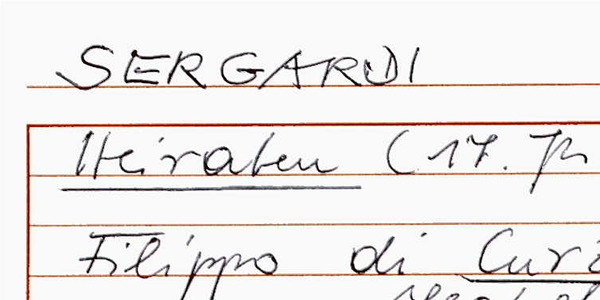 SERGARDI
Heiraten (17. Jh
Filippo di Curz